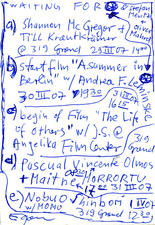 WAITING FOR
Stefan
a) Shannon Mc Gregor +
Till Krautkrämer
@ 319 Grand 29 III 07 14 00
b) start film "A summer in
Berlin" w/ Andrea F. Leminge
30 III 07 19 30
31 III 07
16
c) begin of Film "The Life
of Others" w/ J.S. @
Angelika Film Center
319
Grand
d) Pascual Vincente Olmos
+ Maithe MORRORTU
31 III 07
e) NOBUO Shinbori 1 IV 07
w/ MOMO 319 Grand 12 30